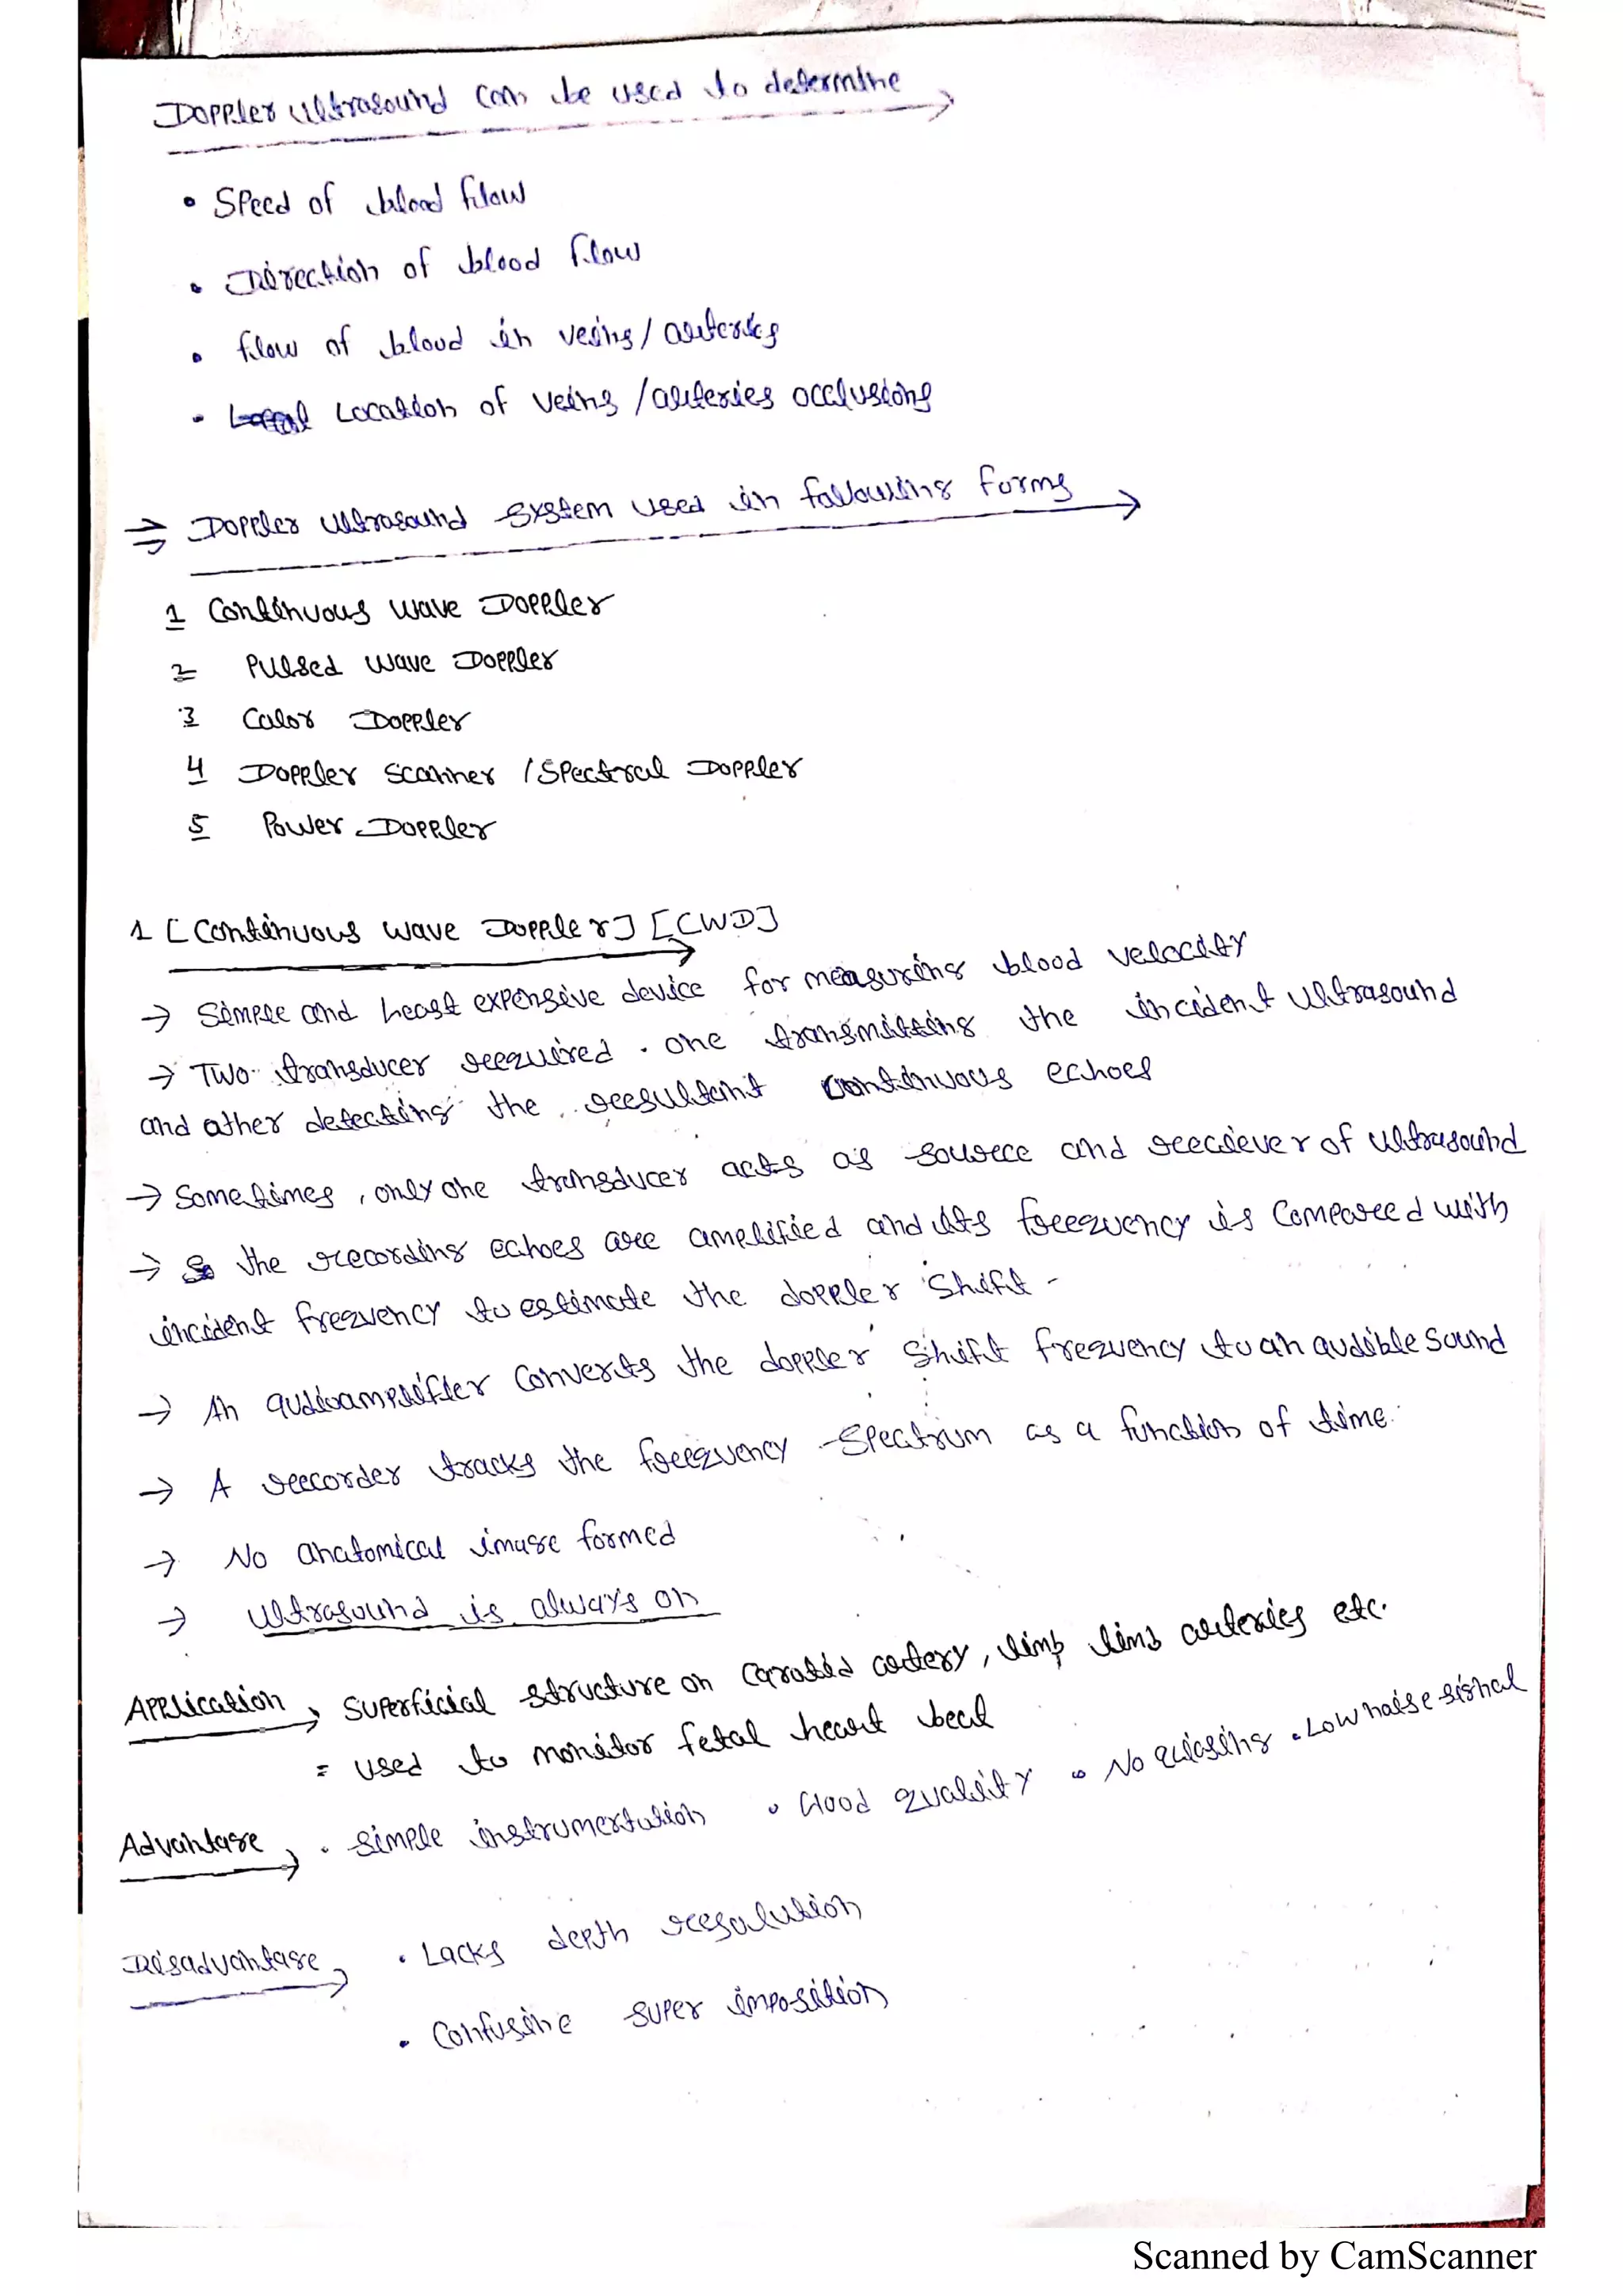 Doppler ultrasound can be used to determine
• Speed of blood flow
• Direction of blood flow
• flow of blood in veins / arteries
• Location of veins / arteries occlusions
⇒ Doppler ultrasound system used in following forms
1 Continuous wave Doppler
2 Pulsed wave Doppler
3 Color Doppler
4 Doppler scanner / Spectral Doppler
5 Power Doppler
1 [Continuous wave Doppler] [CWD]
→ Simple and least expensive device for measuring blood velocity
→ Two transducer required . one transmitting the incident ultrasound
and other detecting the resultant continuous echoes
→ Sometimes , only one transducer acts as source and reciever of ultrasound
→ the recording echoes are amplified and its frequency is compared with
incident frequency to estimate the doppler shift -
→ An audioamplifier converts the doppler shift frequency to an audible sound
→ A recorder tracks the frequency spectrum as a function of time.
→ No anatomical image formed
→ Ultrasound is always on
Application → Superficial structure on carotid artery, limb arteries etc.
= used to monitor fetal heart beat
Advantage → • simple instrumentation • Good quality • No aliasing • Low noise signal
Disadvantage → • Lacks depth resolution
• Confusine super imposition
Scanned by CamScanner